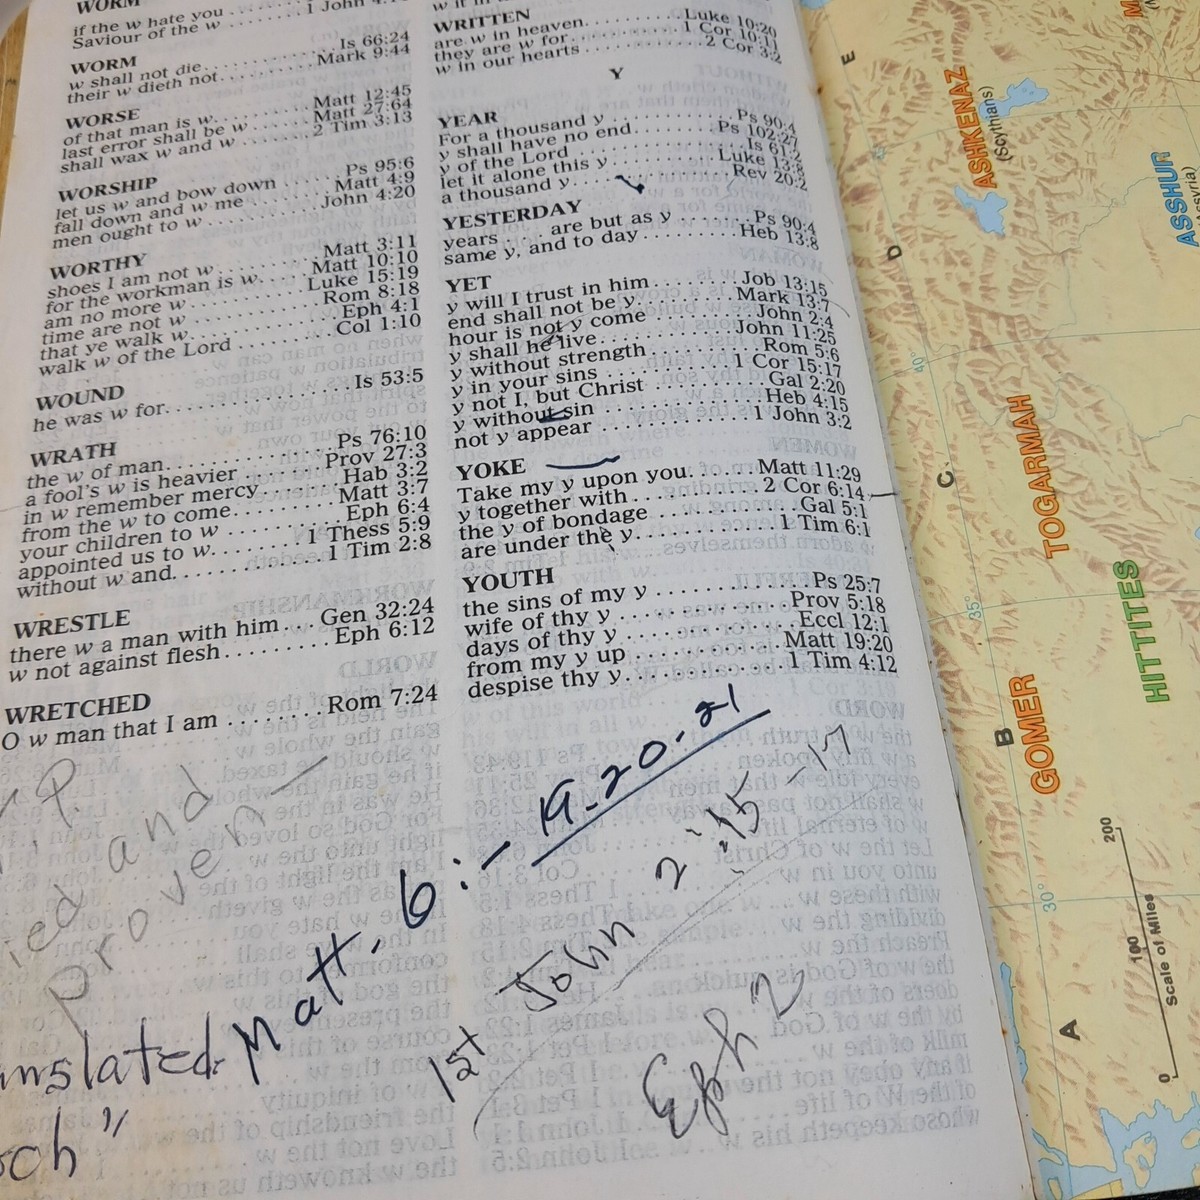 WORM
if the w hate you
Saviour of the w . . . . . . . . 1 John
WORM
w shall not die. . . . . . . . . . . . Is 66:24
their w dieth not. . . . . . . . . Mark 9:44
WORSE
of that man is w. . . . . . . . . Matt 12:45
last error shall be w . . . . . . Matt 27:64
shall wax w and w . . . . . . . 2 Tim 3:13
WORSHIP
let us w and bow down . . . . . . Ps 95:6
fall down and w me . . . . . . . Matt 4:9
men ought to w . . . . . . . . . . John 4:20
WORTHY
shoes I am not w . . . . . . . . . Matt 3:11
for the workman is w. . . . . Matt 10:10
am no more w . . . . . . . . . . Luke 15:19
time are not w . . . . . . . . . . . Rom 8:18
that ye walk w. . . . . . . . . . . . . Eph 4:1
walk w of the Lord . . . . . . . . . Col 1:10
WOUND
he was w for. . . . . . . . . . . . . . . Is 53:5
WRATH
the w of man. . . . . . . . . . . . . Ps 76:10
a fool's w is heavier . . . . . . . Prov 27:3
in w remember mercy. . . . . . . Hab 3:2
from the w to come. . . . . . . . Matt 3:7
your children to w . . . . . . . . . Eph 6:4
appointed us to w. . . . . . . . 1 Thess 5:9
without w and. . . . . . . . . . . . 1 Tim 2:8
WRESTLE
there w a man with him . . . Gen 32:24
w not against flesh . . . . . . . . . Eph 6:12
WRETCHED
O w man that I am . . . . . . . . Rom 7:24
WRITTEN
are w in heaven. . . . . . . . . . Luke 10:20
they are w for . . . . . . . . . . . 1 Cor 10:11
w in our hearts . . . . . . . . . . . 2 Cor 3:2
Y
YEAR
For a thousand y . . . . . . . . . . . Ps 90:4
y shall have no end. . . . . . . . Ps 102:27
y of the Lord . . . . . . . . . . . . . . Is 61:2
let it alone this y . . . . . . . . . . Luke 13:8
a thousand y. . . . . . . . . . . . . . Rev 20:2
YESTERDAY
years . . . are but as y . . . . . . . Ps 90:4
same y, and to day . . . . . . . . . Heb 13:8
YET
y will I trust in him . . . . . . . . Job 13:15
end shall not be y. . . . . . . . . Mark 13:7
hour is not y come . . . . . . . . . John 2:4
y shall he live. . . . . . . . . . . . John 11:25
y without strength . . . . . . . . . Rom 5:6
y in your sins . . . . . . . . . . . 1 Cor 15:17
y not I, but Christ . . . . . . . . . Gal 2:20
y without sin . . . . . . . . . . . . . Heb 4:15
not y appear . . . . . . . . . . . . . 1 John 3:2
YOKE
Take my y upon you. . . . . . Matt 11:29
y together with. . . . . . . . . . . 2 Cor 6:14
the y of bondage . . . . . . . . . . . Gal 5:1
are under the y. . . . . . . . . . . . 1 Tim 6:1
YOUTH
the sins of my y . . . . . . . . . . . . Ps 25:7
wife of thy y . . . . . . . . . . . . . Prov 5:18
days of thy y . . . . . . . . . . . . . Eccl 12:1
from my y up . . . . . . . . . . . Matt 19:20
despise thy y. . . . . . . . . . . . . 1 Tim 4:12
and
Proven -
Matt. 6:- 19-20-21
1st John 2:15-17
Eph 2
E
D
C
B
A
ASHKENAZ
(Scythians)
ASSHUR
TOGARMAH
HITTITES
GOMER
40°
35°
30°
0 100 200
Scale of Miles